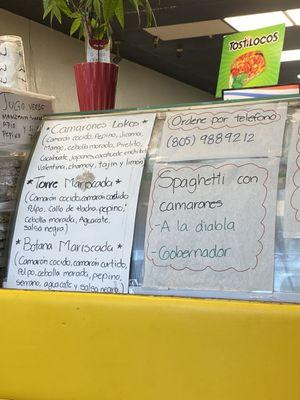 TOSTiLOCOS
JUGO VERDE
MANZANA
APIO
PEPINO
* Camarones Locos *
(Camarón cocido, Pepino, Jicama,
Mango, cebolla morada, Pivelito,
Cacahuate japones,
Valentina, chamoy, tajin y limón)
* Torre Mariscada *
(Camarón cocido, camarón curtido
Pulpo, Callo de Hacha, pepino,
Cebolla morada, Aguacate,
salsa negra)
* Botana Mariscada *
(Camarón cocido, camarón curtido,
Pulpo, cebolla morada, pepino,
serrano, aguacate y salsa negra)
Ordene por telefono
(805) 9889212
Spaghetti con
camarones
-A la diabla
-Gobernador